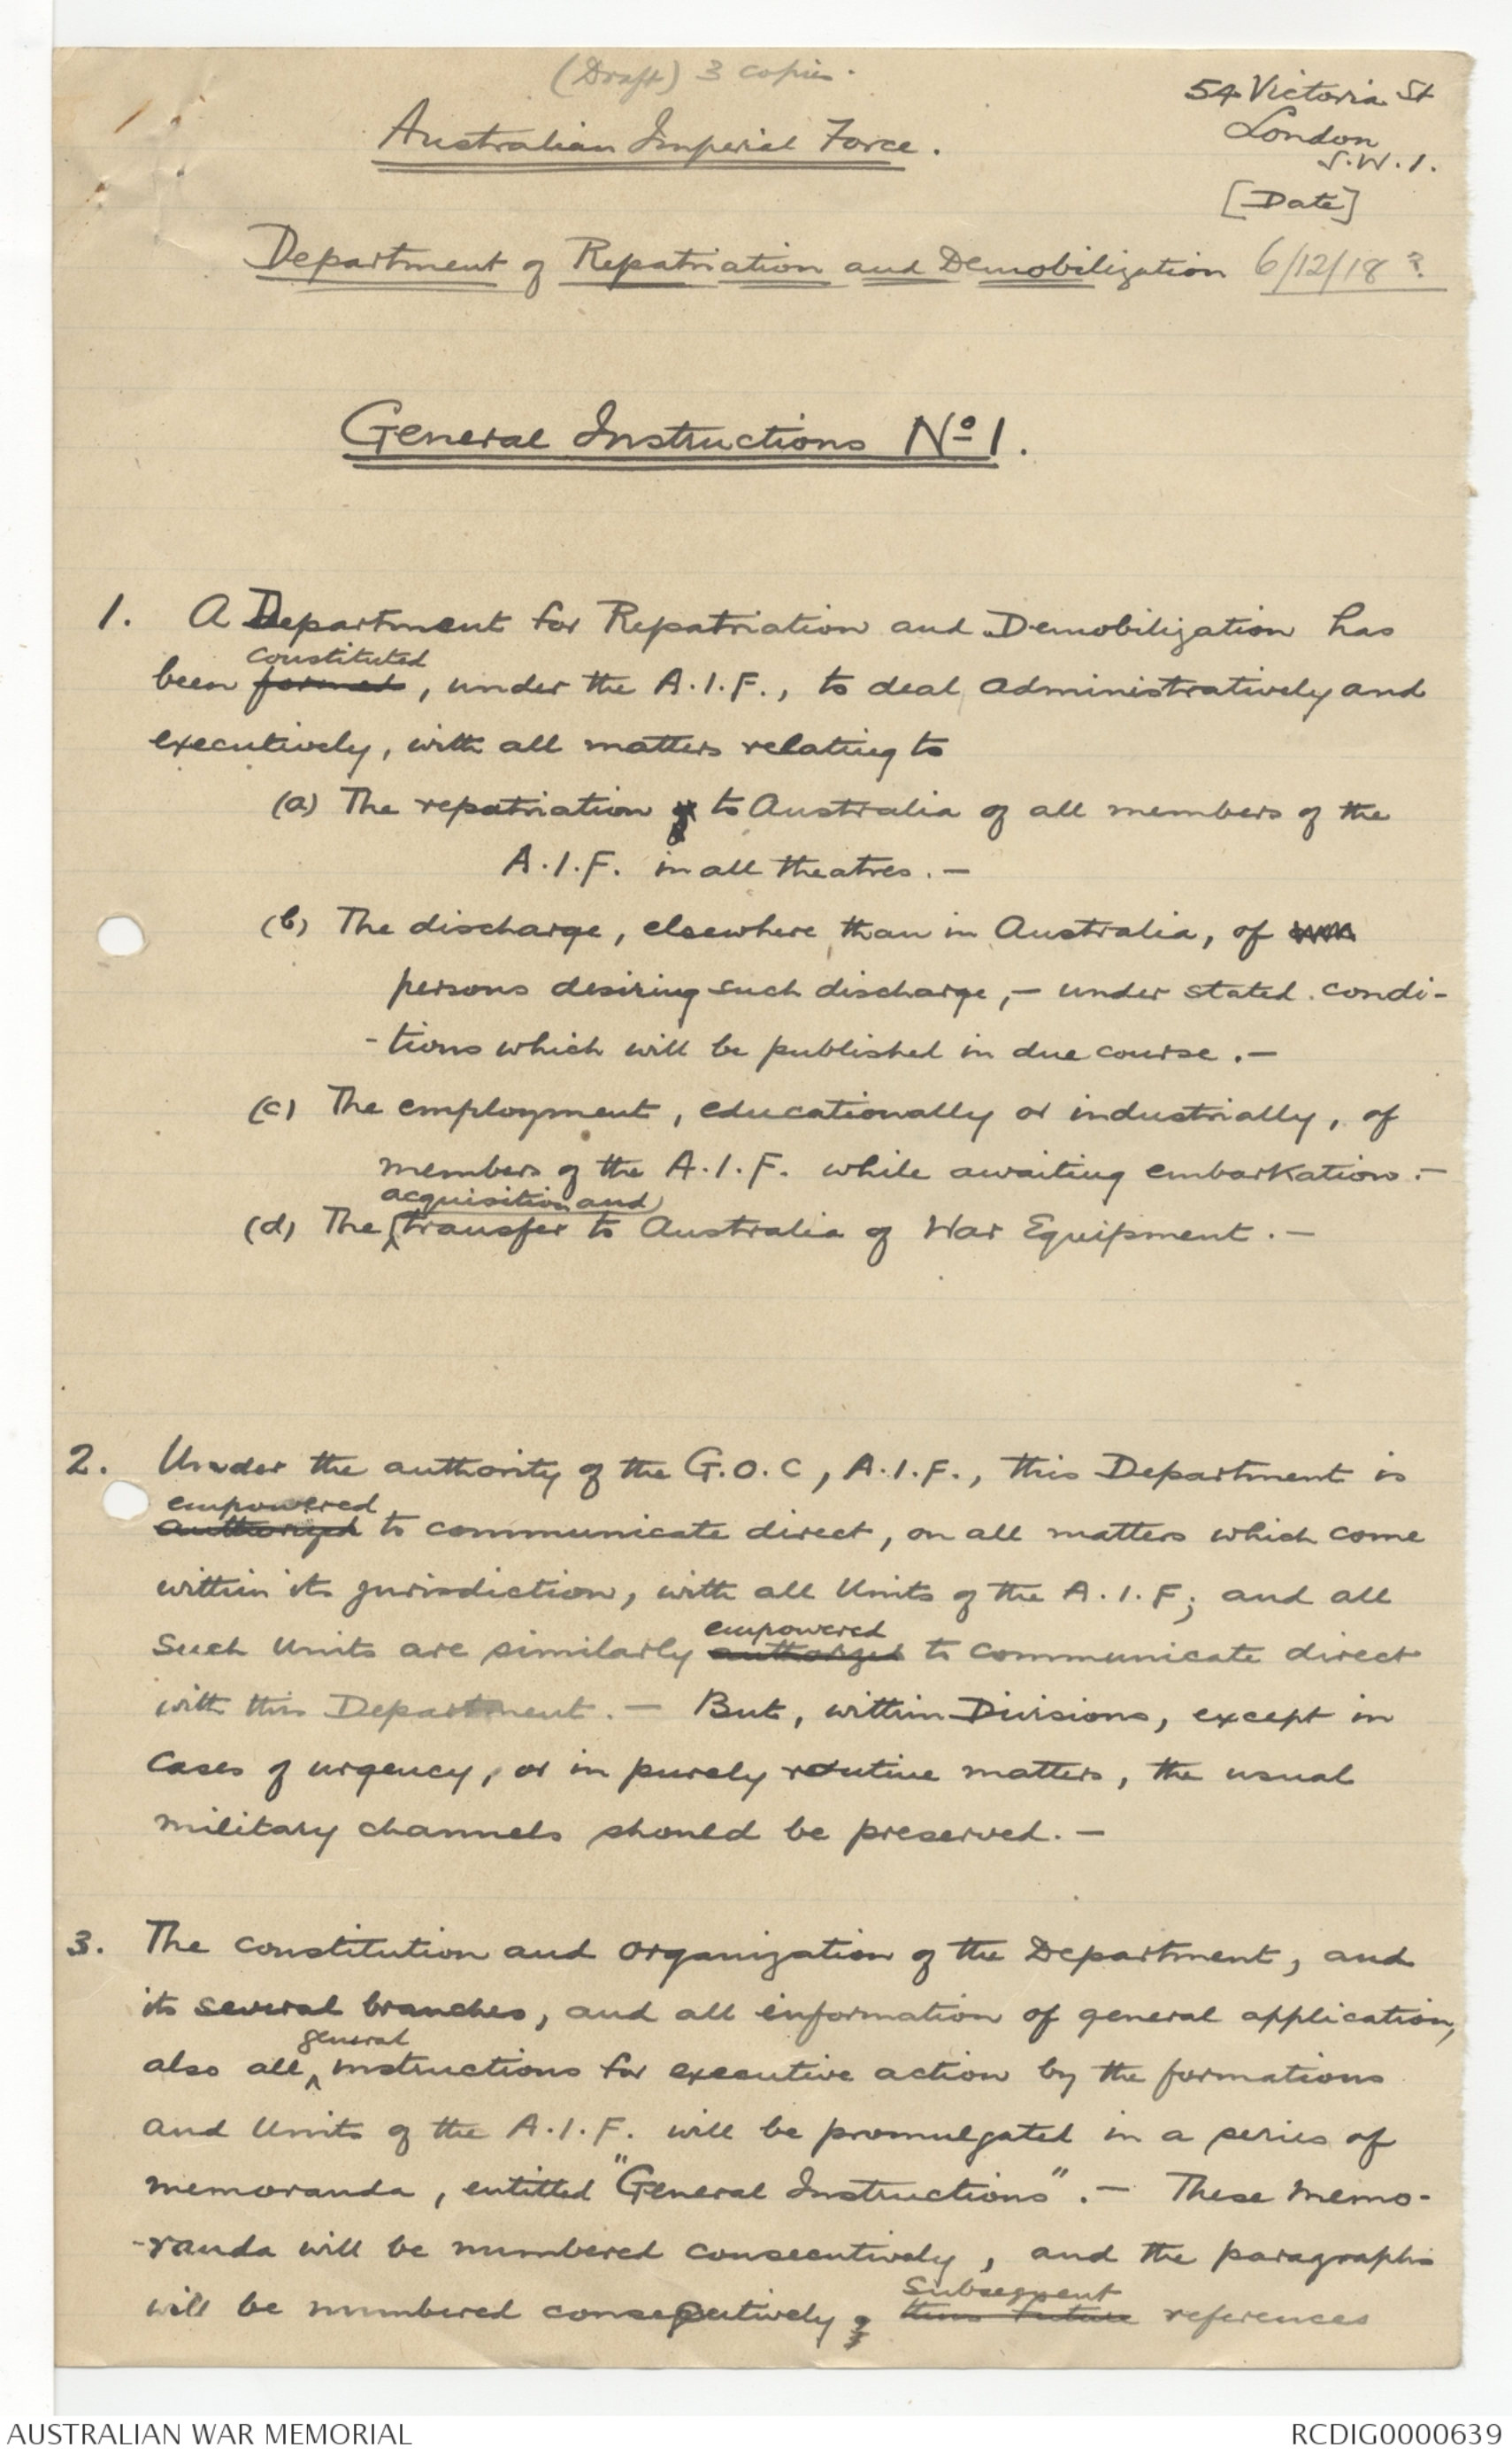 (Draft) 3 copies.
54 Victoria St
London
S.W.1.
[Date]
Australian Imperial Force.
Department of Repatriation and Demobilization 6/12/18?
General Instructions No 1.
1. A Department for Repatriation and Demobilization has
constituted
been formed, under the A.I.F., to deal, administratively and
executively, with all matters relating to
(a) The repatriation to Australia of all members of the
A.I.F. in all theatres. —
(b) The discharge, elsewhere than in Australia, of
persons desiring such discharge, — under stated condi-
-tions which will be published in due course. —
(c) The employment, educationally or industrially, of
members of the A.I.F. while awaiting embarkation. —
acquisition and
(d) The transfer to Australia of War Equipment. —
2. Under the authority of the G.O.C, A.I.F., this Department is
empowered
authorized to communicate direct, on all matters which come
within its jurisdiction, with all Units of the A.I.F; and all
empowered
such Units are similarly authorized to communicate direct
with this Department. — But, within Divisions, except in
cases of urgency, or in purely routine matters, the usual
military channels should be preserved. —
3. The constitution and organization of the Department, and
its several branches, and all information of general application,
general
also all instructions for executive action by the formations
and Units of the A.I.F. will be promulgated in a series of
memoranda, entitled "General Instructions". — These Memo-
-randa will be numbered consecutively, and the paragraphs
Subsequent
will be numbered consecutively; thus future references
AUSTRALIAN WAR MEMORIAL
RCDIG0000639